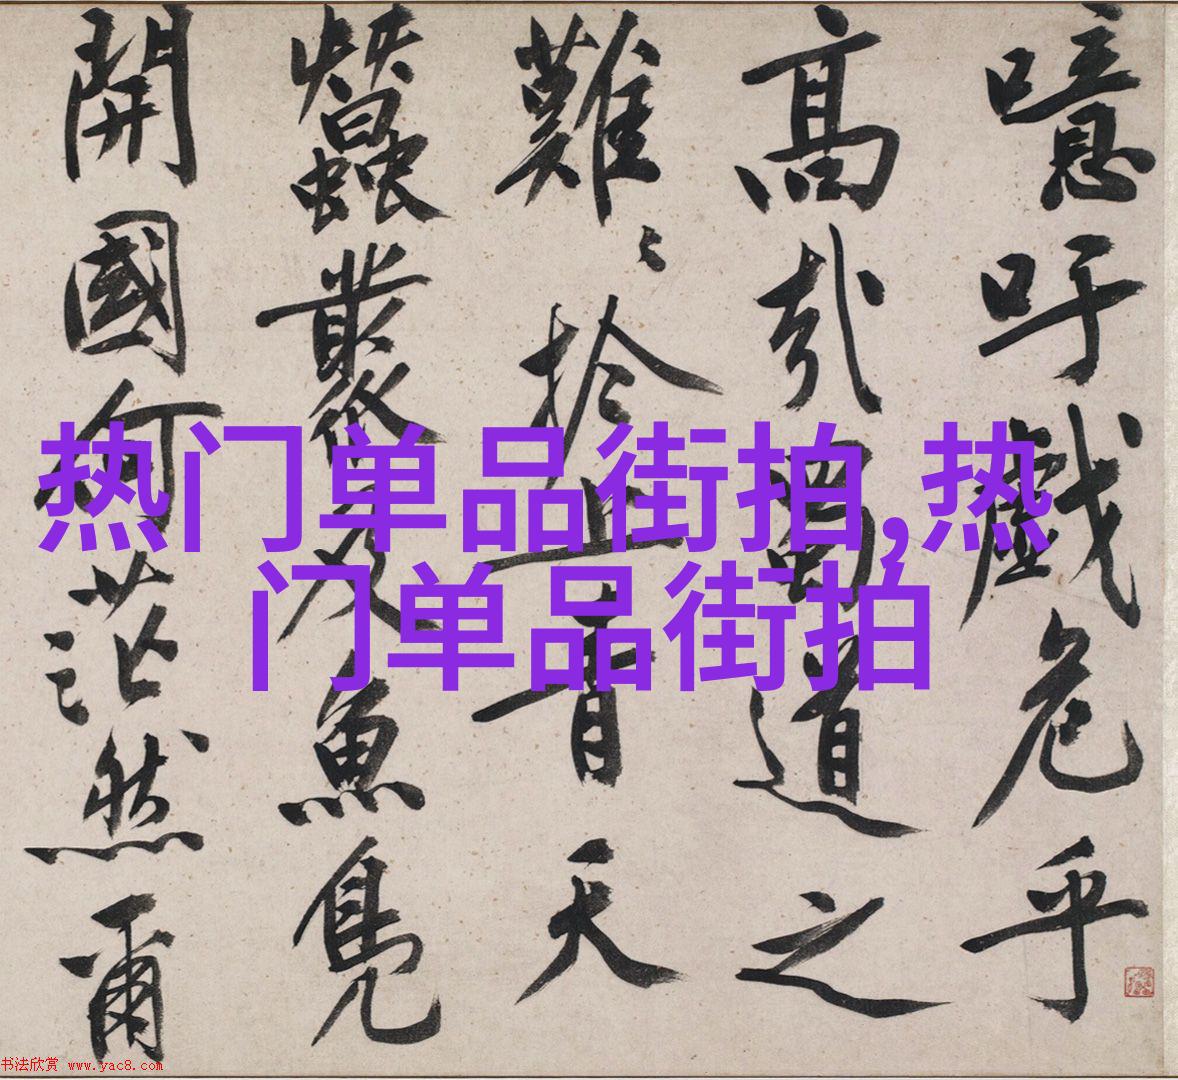 热门单品街拍,热
门单品街拍
噫吁戲危乎
高哉蜀道之
難〻扵上青天
蠶叢及魚鳧
開國何茫然爾
书法欣赏 www.yac8.com